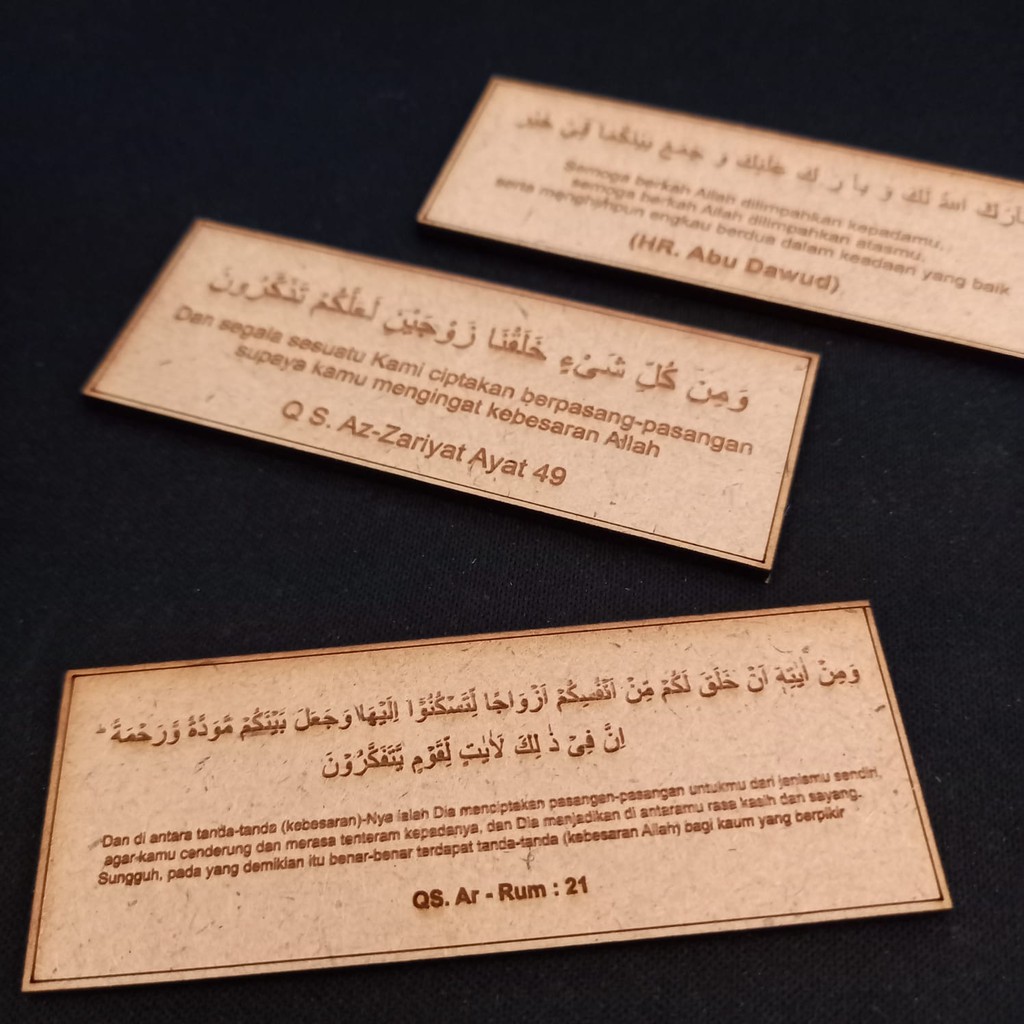 بَارَكَ اللهُ لَكَ وَ بَا رَ كَ عَلَيْكَ وَ جَمَعَ بَيْنَكُمَا فِيْ خَيْر
Semoga berkah Allah dilimpahkan kepadamu,
semoga berkah Allah dilimpahkan atasmu,
serta menghimpun engkau berdua dalam keadaan yang baik
(HR. Abu Dawud)
وَمِنْ كُلِّ شَىْءٍ خَلَقْنَا زَوْجَيْنِ لَعَلَّكُمْ تَذَكَّرُونَ
Dan segala sesuatu Kami ciptakan berpasang-pasangan
supaya kamu mengingat kebesaran Allah
Q S. Az-Zariyat Ayat 49
وَمِنْ اٰيٰتِهٖٓ اَنْ خَلَقَ لَكُمْ مِّنْ اَنْفُسِكُمْ اَزْوَاجًا لِّتَسْكُنُوْٓا اِلَيْهَا وَجَعَلَ بَيْنَكُمْ مَّوَدَّةً وَّرَحْمَةً ۗ
اِنَّ فِيْ ذٰ لِكَ لَاٰيٰتٍ لِّقَوْمٍ يَّتَفَكَّرُوْنَ
Dan di antara tanda-tanda (kebesaran)-Nya ialah Dia menciptakan pasangan-pasangan untukmu dari jenismu sendiri,
agar kamu cenderung dan merasa tenteram kepadanya, dan Dia menjadikan di antaramu rasa kasih dan sayang.
Sungguh, pada yang demikian itu benar-benar terdapat tanda-tanda (kebesaran Allah) bagi kaum yang berpikir
QS. Ar - Rum : 21